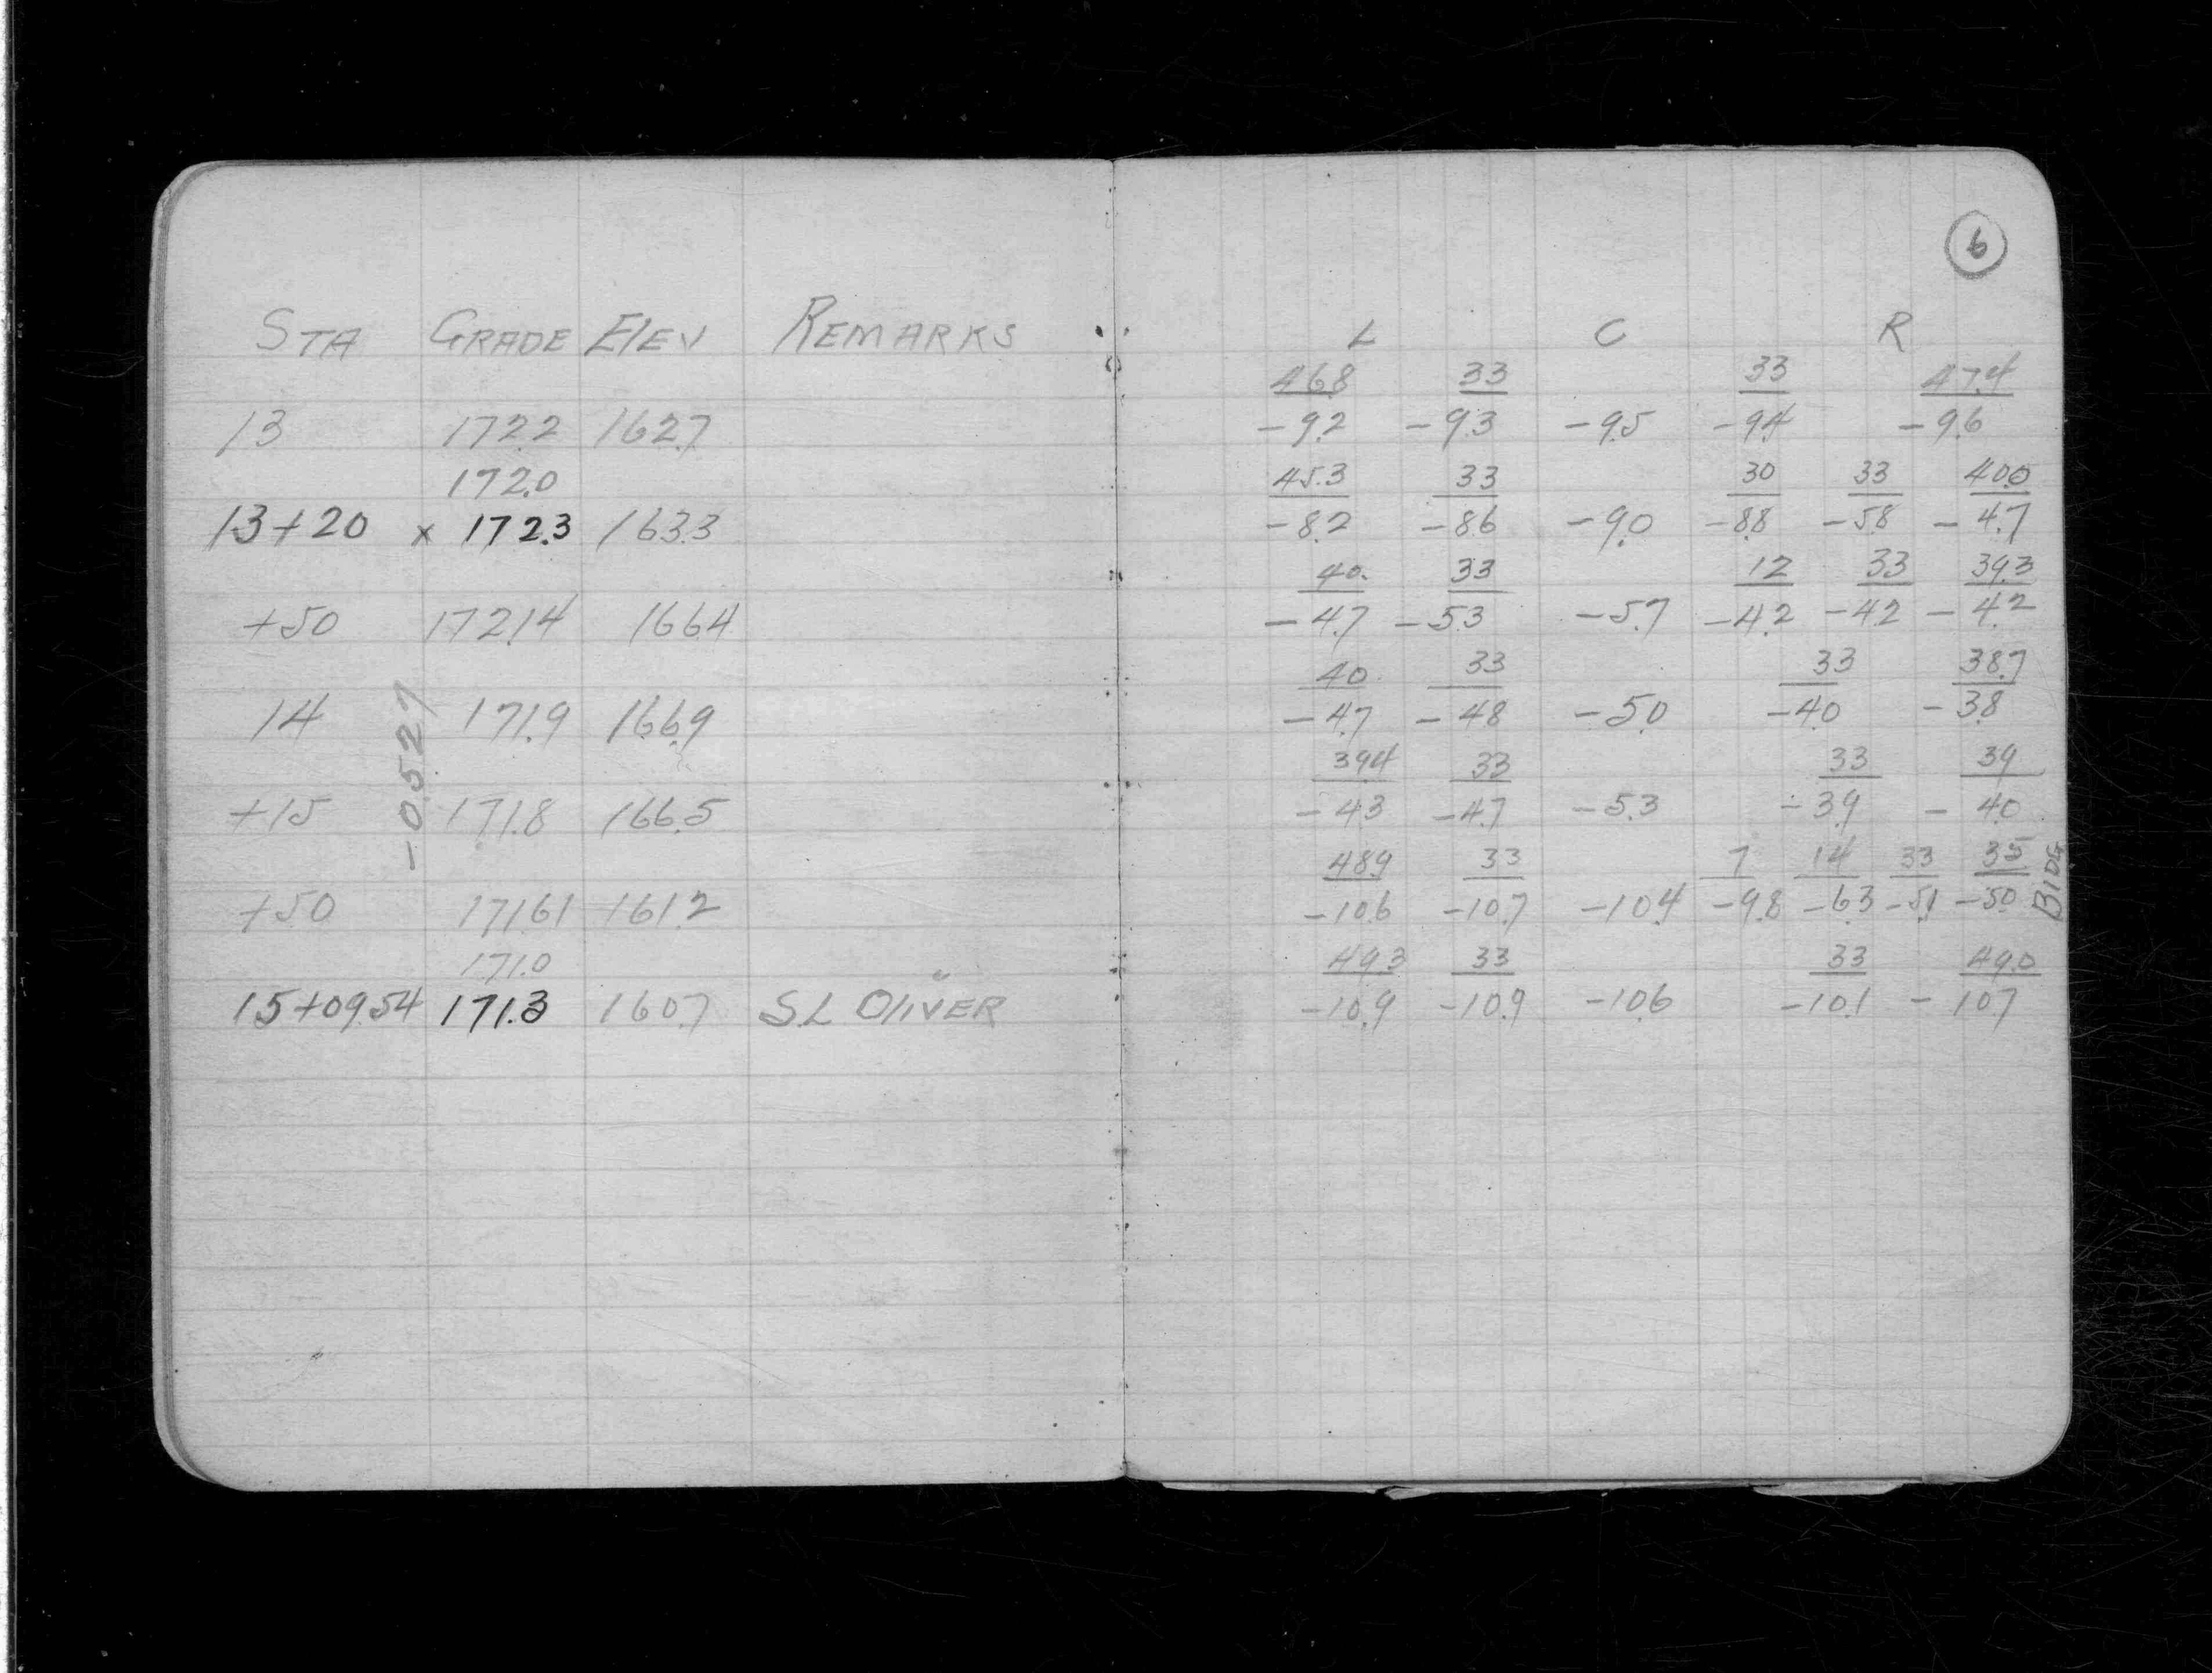 6
STA GRADE ELEV REMARKS L C R
46.8 33 33 47.4
13 172.2 162.7 -9.2 -9.3 -9.5 -9.4 -9.6
172.0 45.3 33 30 33 40.0
13+20 x 172.3 163.3 -8.2 -8.6 -9.0 -8.8 -5.8 -4.7
40. 33 12 33 39.3
+50 172.14 166.4 -4.7 -5.3 -5.7 -4.2 -4.2 -4.2
40 33 33 38.7
14 171.9 166.9 -4.7 -4.8 -5.0 -4.0 -3.8
-0.527
39.4 33 33 39
+15 171.8 166.5 -4.3 -4.7 -5.3 -3.9 -4.0
48.9 33 7 14 33 35
+50 171.61 161.2 -10.6 -10.7 -10.4 -9.8 -6.3 -5.1 -5.0 BLDG
171.0 49.3 33 33 49.0
15+09.54 171.3 160.7 S.L OLIVER -10.9 -10.9 -10.6 -10.1 -10.7